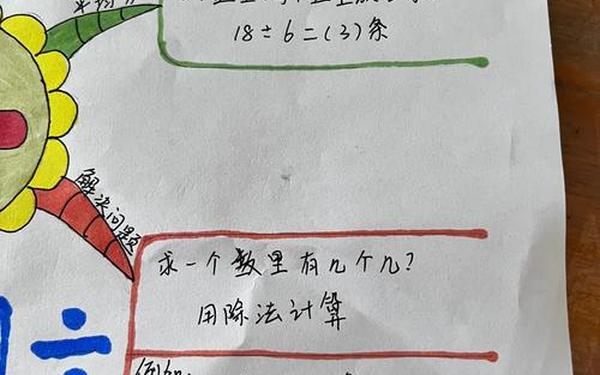 平均分
18÷6=(3)条
解决问题
求一个数里有几个几?
用除法计算
例如